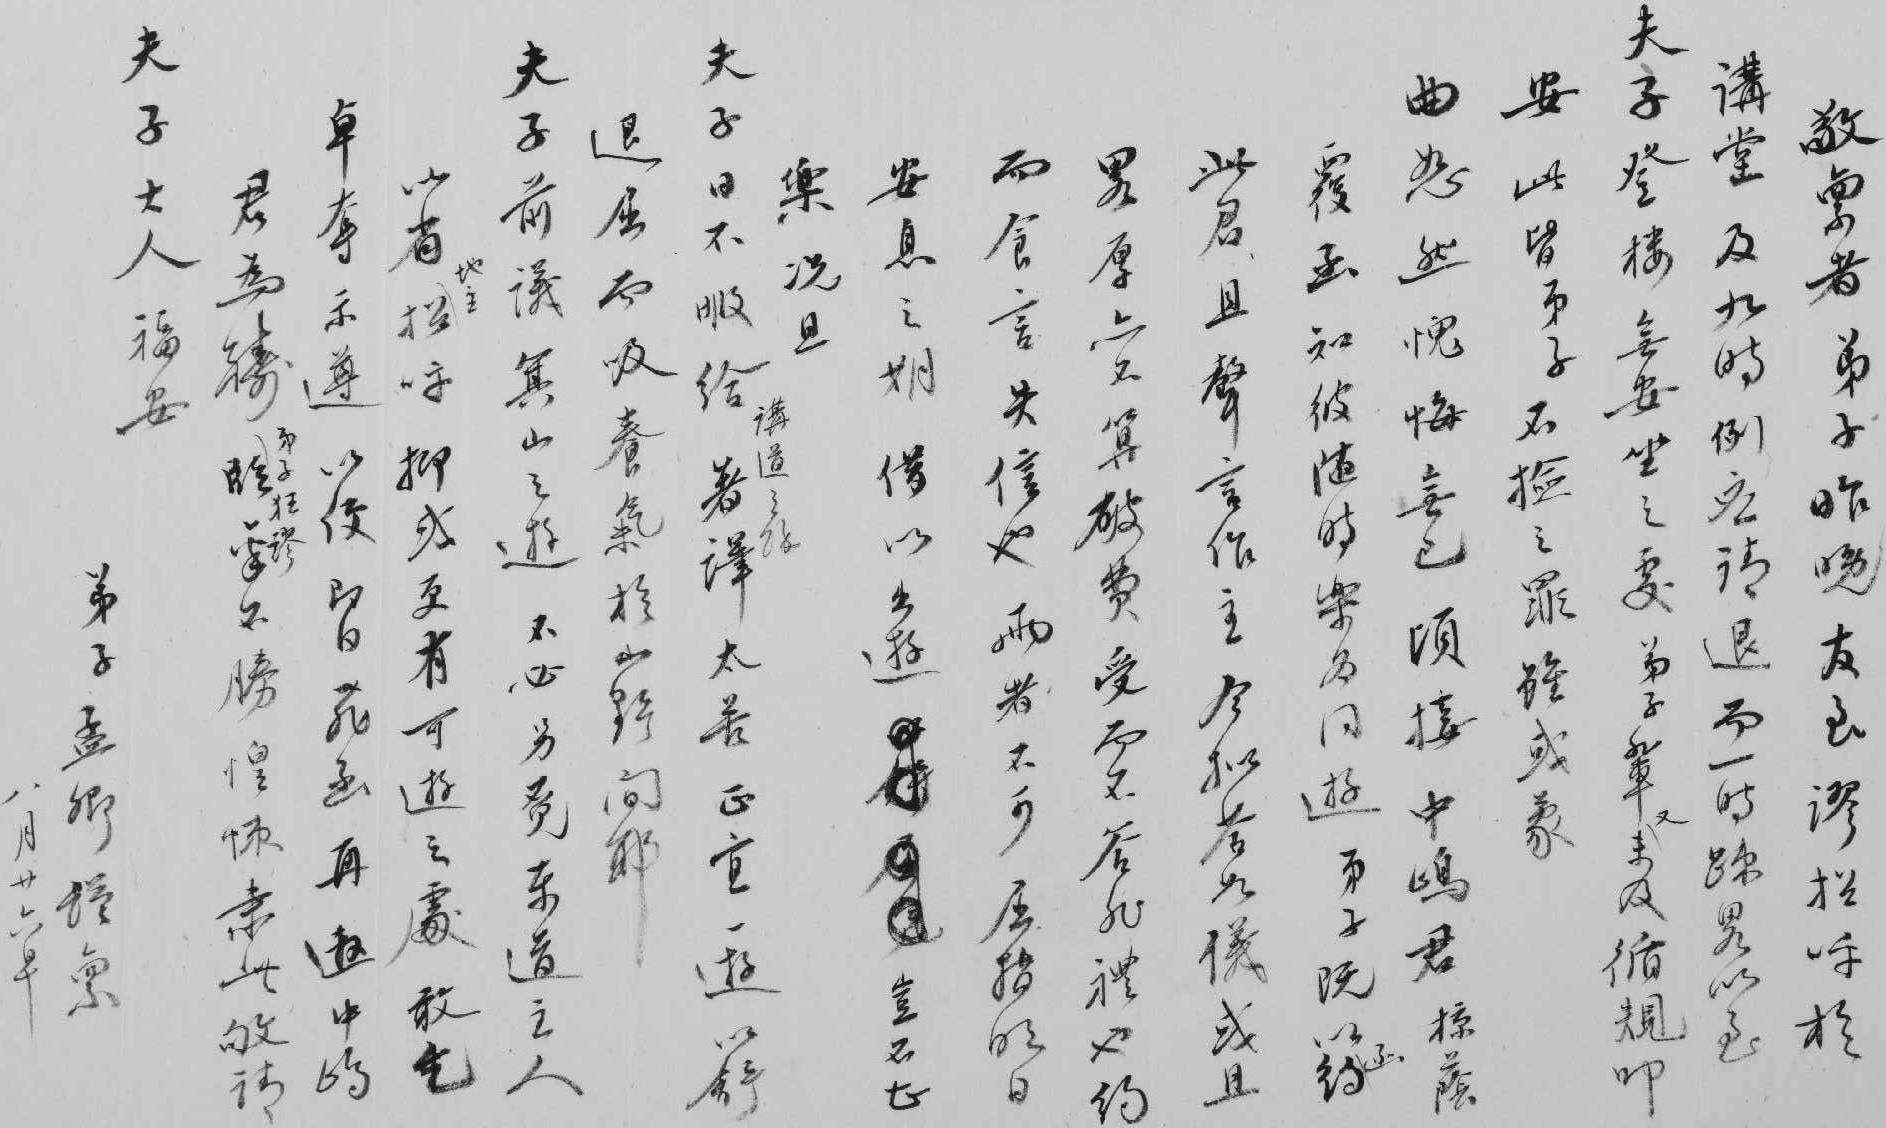 敬稟者弟子昨晚友至謬招呼於
講堂及九時例應請退而一時疎畧以至
夫子登楼無安坐之處弟子輩又未及循規叩
安此皆弟子不檢之罪雖或蒙
曲恕然愧悔無已頃接中嶋君椋蔭
覆函知彼随時樂為同遊弟子既以函約
此君且聲言作主今拟若此儀或且
畧厚亦不算破費受而不答非禮也約
而食言失信也兩者不可屈指明日
安息之期借以出遊豈不甚
樂况且
夫子日不暇給講道之餘著譯太苦正宜一遊以舒
退屈而吸養氣於山野間耶
夫子前議箕山之遊不必另覓東道主人
以省地主招呼抑或更有可遊之處敢乞
卓奪示遵以便即日飛函再邀中嶋
君為禱弟子狂謬臨筆不勝惶悚肅此敬請
夫子大人福安
弟子孟卿謹稟
八月廿六早